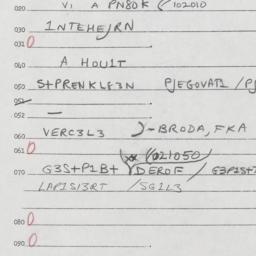 020 VI A PN80K (102010
030 1NTEHEJRN
031 0
040 A HOU1T
050 S+PRENKLG3N PJEGOVAT1 /PJ
051
052 —
060 VERC3L3 )-BRODA, FKA
061 0
(021050)
070 G3S+P1B+ DEROF / G3P1S+
LAP1S13RT /SG1L3
080 0
090 0